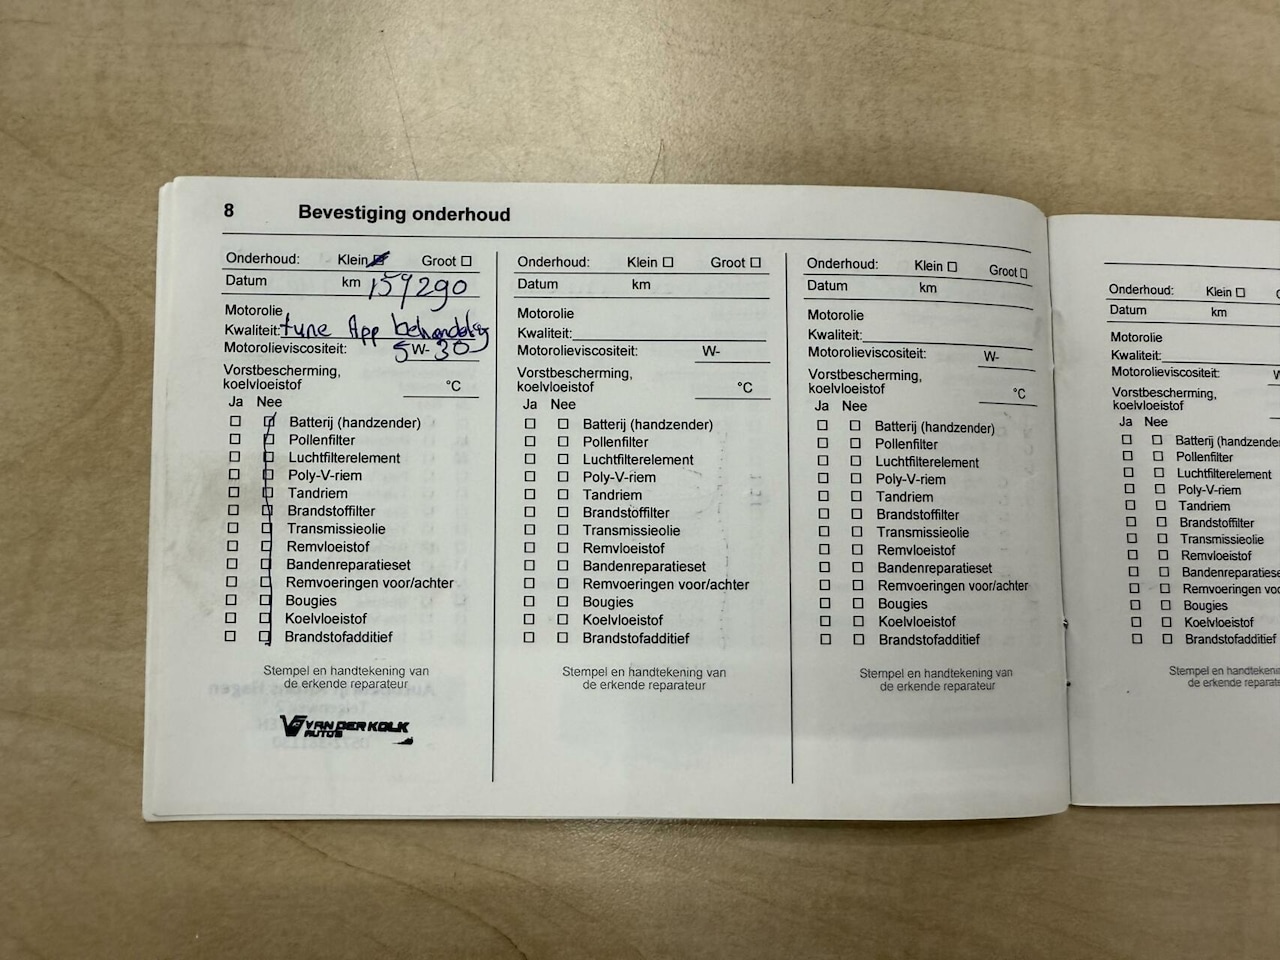 8 Bevestiging onderhoud
Onderhoud: Klein Groot
Datum km 159290
Motorolie
Kwaliteit: tune App behandeling
Motorolieviscositeit: 5W-30
Vorstbescherming,
koelvloeistof °C
Ja Nee
Batterij (handzender)
Pollenfilter
Luchtfilterelement
Poly-V-riem
Tandriem
Brandstoffilter
Transmissieolie
Remvloeistof
Bandenreparatieset
Remvoeringen voor/achter
Bougies
Koelvloeistof
Brandstofadditief
Stempel en handtekening van
de erkende reparateur
VAN DER KOLK
AUTOS
Onderhoud: Klein Groot
Datum km
Motorolie
Kwaliteit:
Motorolieviscositeit: W-
Vorstbescherming,
koelvloeistof °C
Ja Nee
Batterij (handzender)
Pollenfilter
Luchtfilterelement
Poly-V-riem
Tandriem
Brandstoffilter
Transmissieolie
Remvloeistof
Bandenreparatieset
Remvoeringen voor/achter
Bougies
Koelvloeistof
Brandstofadditief
Stempel en handtekening van
de erkende reparateur
Onderhoud: Klein Groot
Datum km
Motorolie
Kwaliteit:
Motorolieviscositeit: W-
Vorstbescherming,
koelvloeistof °C
Ja Nee
Batterij (handzender)
Pollenfilter
Luchtfilterelement
Poly-V-riem
Tandriem
Brandstoffilter
Transmissieolie
Remvloeistof
Bandenreparatieset
Remvoeringen voor/achter
Bougies
Koelvloeistof
Brandstofadditief
Stempel en handtekening van
de erkende reparateur
Onderhoud: Klein
Datum km
Motorolie
Kwaliteit:
Motorolieviscositeit:
Vorstbescherming,
koelvloeistof
Ja Nee
Batterij (handzender
Pollenfilter
Luchtfilterelement
Poly-V-riem
Tandriem
Brandstoffilter
Transmissieolie
Remvloeistof
Bandenreparatiese
Remvoeringen voo
Bougies
Koelvloeistof
Brandstofadditief
Stempel en handtekenin
de erkende repara